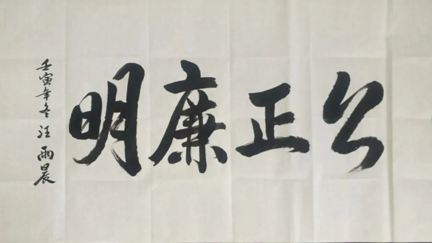 公正廉明
壬寅年冬 汪雨晨